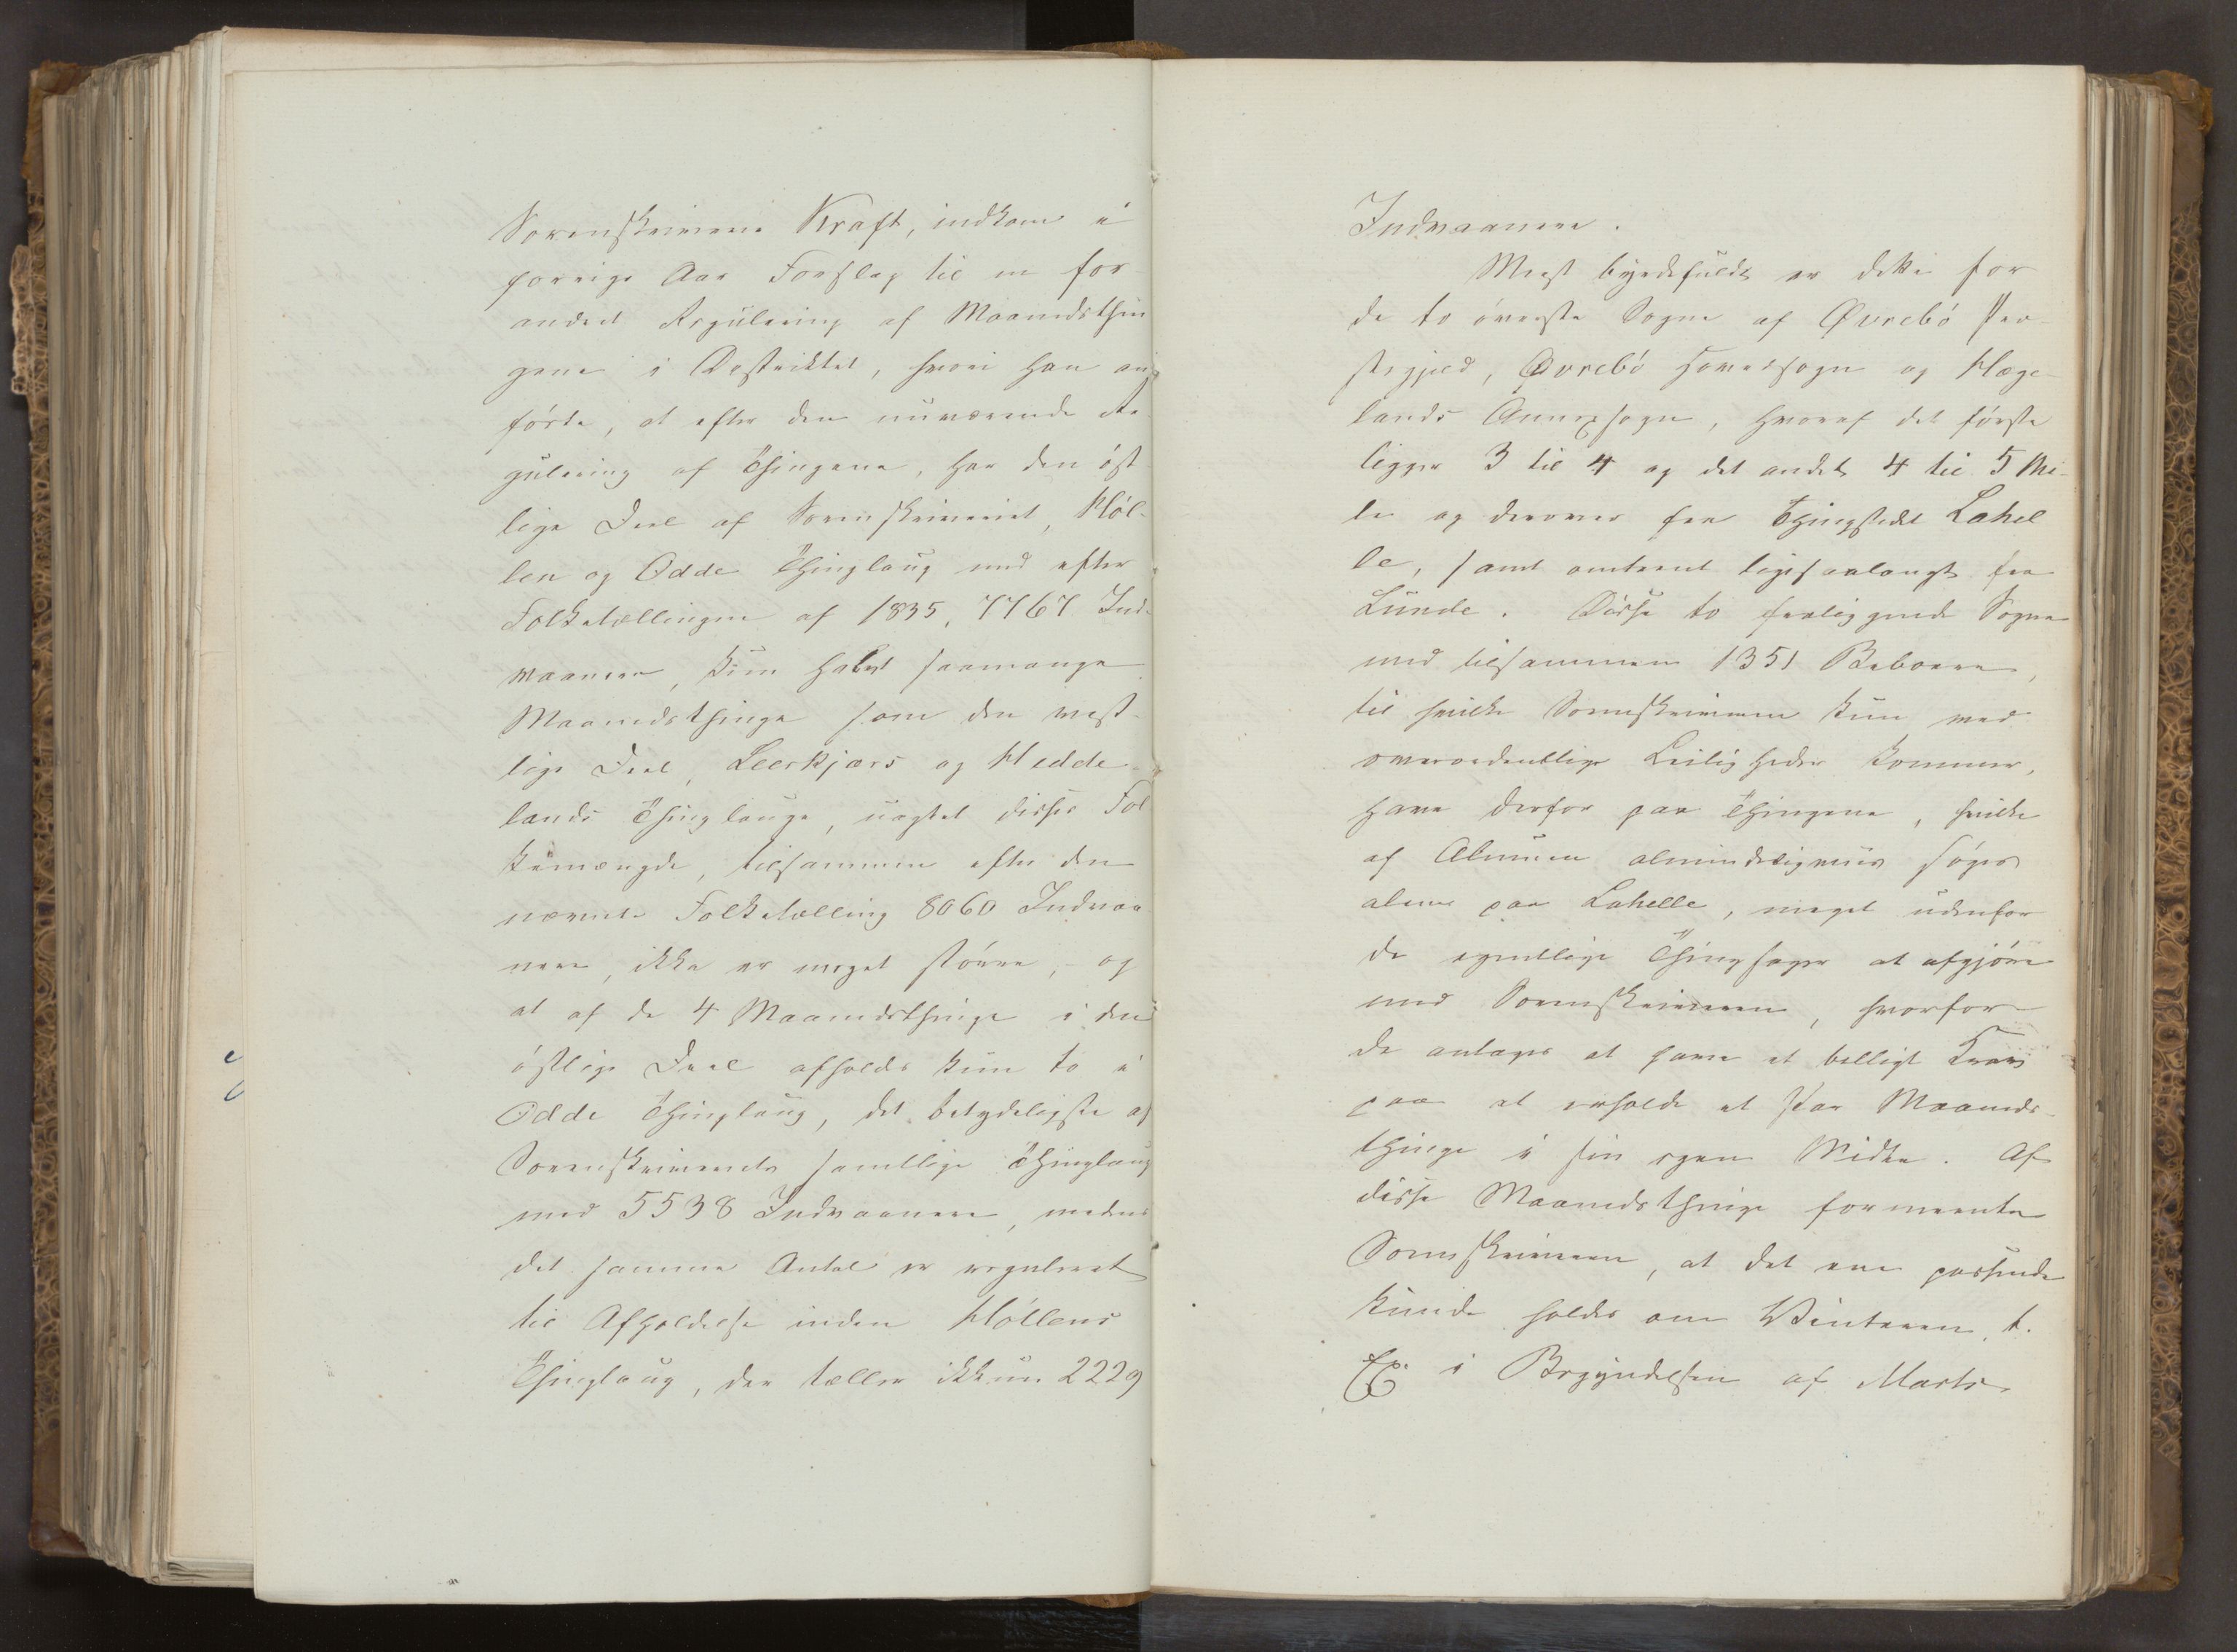 Sorenskriveren Kraft, indkom i
forrige Aar Forslag til en for-
andret Regulering af Maanedsthin
gene i Districtet, hvori han an-
förte, at efter den nuværende Re
gulering af Thingene, har den öst
lige Deel af Sorenskriveriet, Höl-
len og Odde Thinglaug med efter
Folketællingen af 1835, 7767 Ind-
vaanere, kun havt saamange
Maanedsthinge som den vest-
lige Deel, Leerkjærs og Hedde-
lands Thinglauge, uagtet disses Fol
kemængde, tilsammen efter den
nævnte Folketælling 8060 Indvaa
nere, ikke er meget större, - og
at af de 4 Maanedsthinge i den
östlige Deel afholdes kun to i
Odde Thinglaug, det betydeligste af
Sorenskriveriets samtlige Thinglaug
med 5538 Indvaanere, medens
det samme Antal er reguleret
til Afholdelse inden Höllens
Thinglaug, der tæller ikkun 2229
Indvaanere.
Meest byrdefuldt er dette for
de to överste Sogne af Øvrebö Præ-
stegjeld, Øvrebö Hovedsogn og Hæge-
lands Annexsogn, hvoraf det förste
ligger 3 til 4 og det andet 4 til 5 Mi-
le og derover fra Thingstedet Lahel
le, samt omtrent ligesaalangt fra
Lunde. Disse to fraliggende Sogne
med tilsammen 1351 Beboere,
til hvilke Sorenskriveren kun ved
overordentlige Leiligheder kommer,
have derfor paa Thingene, hvilke
af Almuen almindeligviis söges
alene paa Lahelle, meget udenfor
de egentlige Thingsager at afgjöre
med Sorenskriveren, hvorfor
de antages at have et billigt Krav
paa at erholde et Par Maaneds-
thinge i sin egen Midte. Af
disse Maanedsthinge formeente
Sorenskriveren, at det ene passende
kunde holdes om Vinteren, t.
Ex. i Begyndelsen af Marts